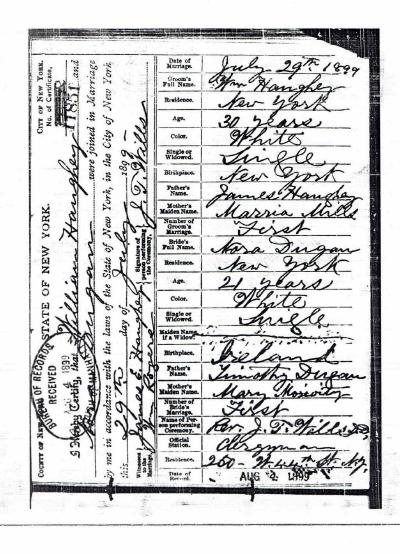 CITY OF NEW YORK.
No. of Certificate,
11851
COUNTY OF NEW YORK.
STATE OF NEW YORK.
BUREAU OF RECORDS
RECEIVED
1899
I Hereby Certify, that William Haughey and
Nora Dugan were joined in Marriage
by me in accordance with the laws of the State of New York, in the City of New York,
this 29th day of July 1899
Witnesses to the Marriage. James E. Haughey
Rogers
Signature of person performing the Ceremony. J. T. Wills
Date of Marriage. July 29th 1899
Groom's Full Name. Wm Haughey
Residence. New York
Age. 30 years
Color. White
Single or Widowed. Single
Birthplace. New York
Father's Name. James Haughey
Mother's Maiden Name. Marria Mills
Number of Groom's Marriage. First
Bride's Full Name. Nora Dugan
Residence. New York
Age. 21 years
Color. White
Single or Widowed. Single
Maiden Name, if a Widow.
Birthplace. Ireland
Father's Name. Timothy Dugan
Mother's Maiden Name. Mary
Number of Bride's Marriage. First
Name of Person performing Ceremony. Rev. J. T. Wills
Official Station. Clergyman
Residence. 260 W 44th St. N.Y.
Date of Record. AUG 2 1899